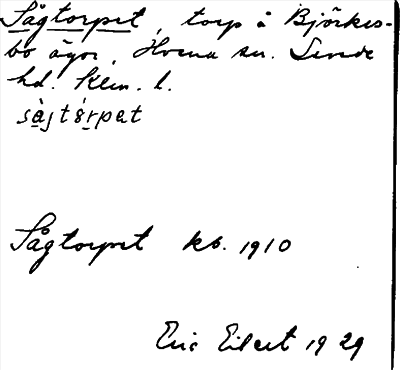 Sågtorpet, torp å Björkes-
bo ägor, Hvena sn. Sevede
hd. Klm. l.
sàjtórpet
Sågtorpet kb. 1910
Eric Eilert 1929